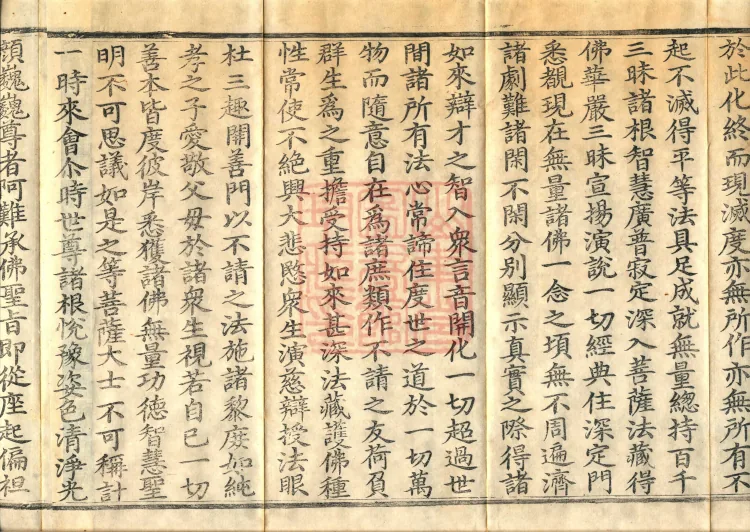 於此化終而現滅度亦無所作亦無所有不
起不滅得平等法具足成就無量總持百千
三昧諸根智慧廣普寂定深入菩薩法藏得
佛華嚴三昧宣揚演說一切經典住深定門
悉覩現在無量諸佛一念之頃無不周遍濟
諸劇難諸閑不閑分別顯示真實之際得諸
如來辯才之智入衆言音開化一切超過世
間諸所有法心常諦住度世之道於一切萬
物而隨意自在為諸庶類作不請之友荷負
群生為之重擔受持如來甚深法藏護佛種
性常使不絕興大悲愍衆生演慈辯授法眼
杜三趣開善門以不請之法施諸黎庶如純
孝之子愛敬父母於諸衆生視若自己一切
善本皆度彼岸悉獲諸佛無量功德智慧聖
明不可思議如是之等菩薩大士不可稱計
一時來會尒時世尊諸根恱豫姿色清淨光
顏巍巍尊者阿難承佛聖旨即從座起偏袒